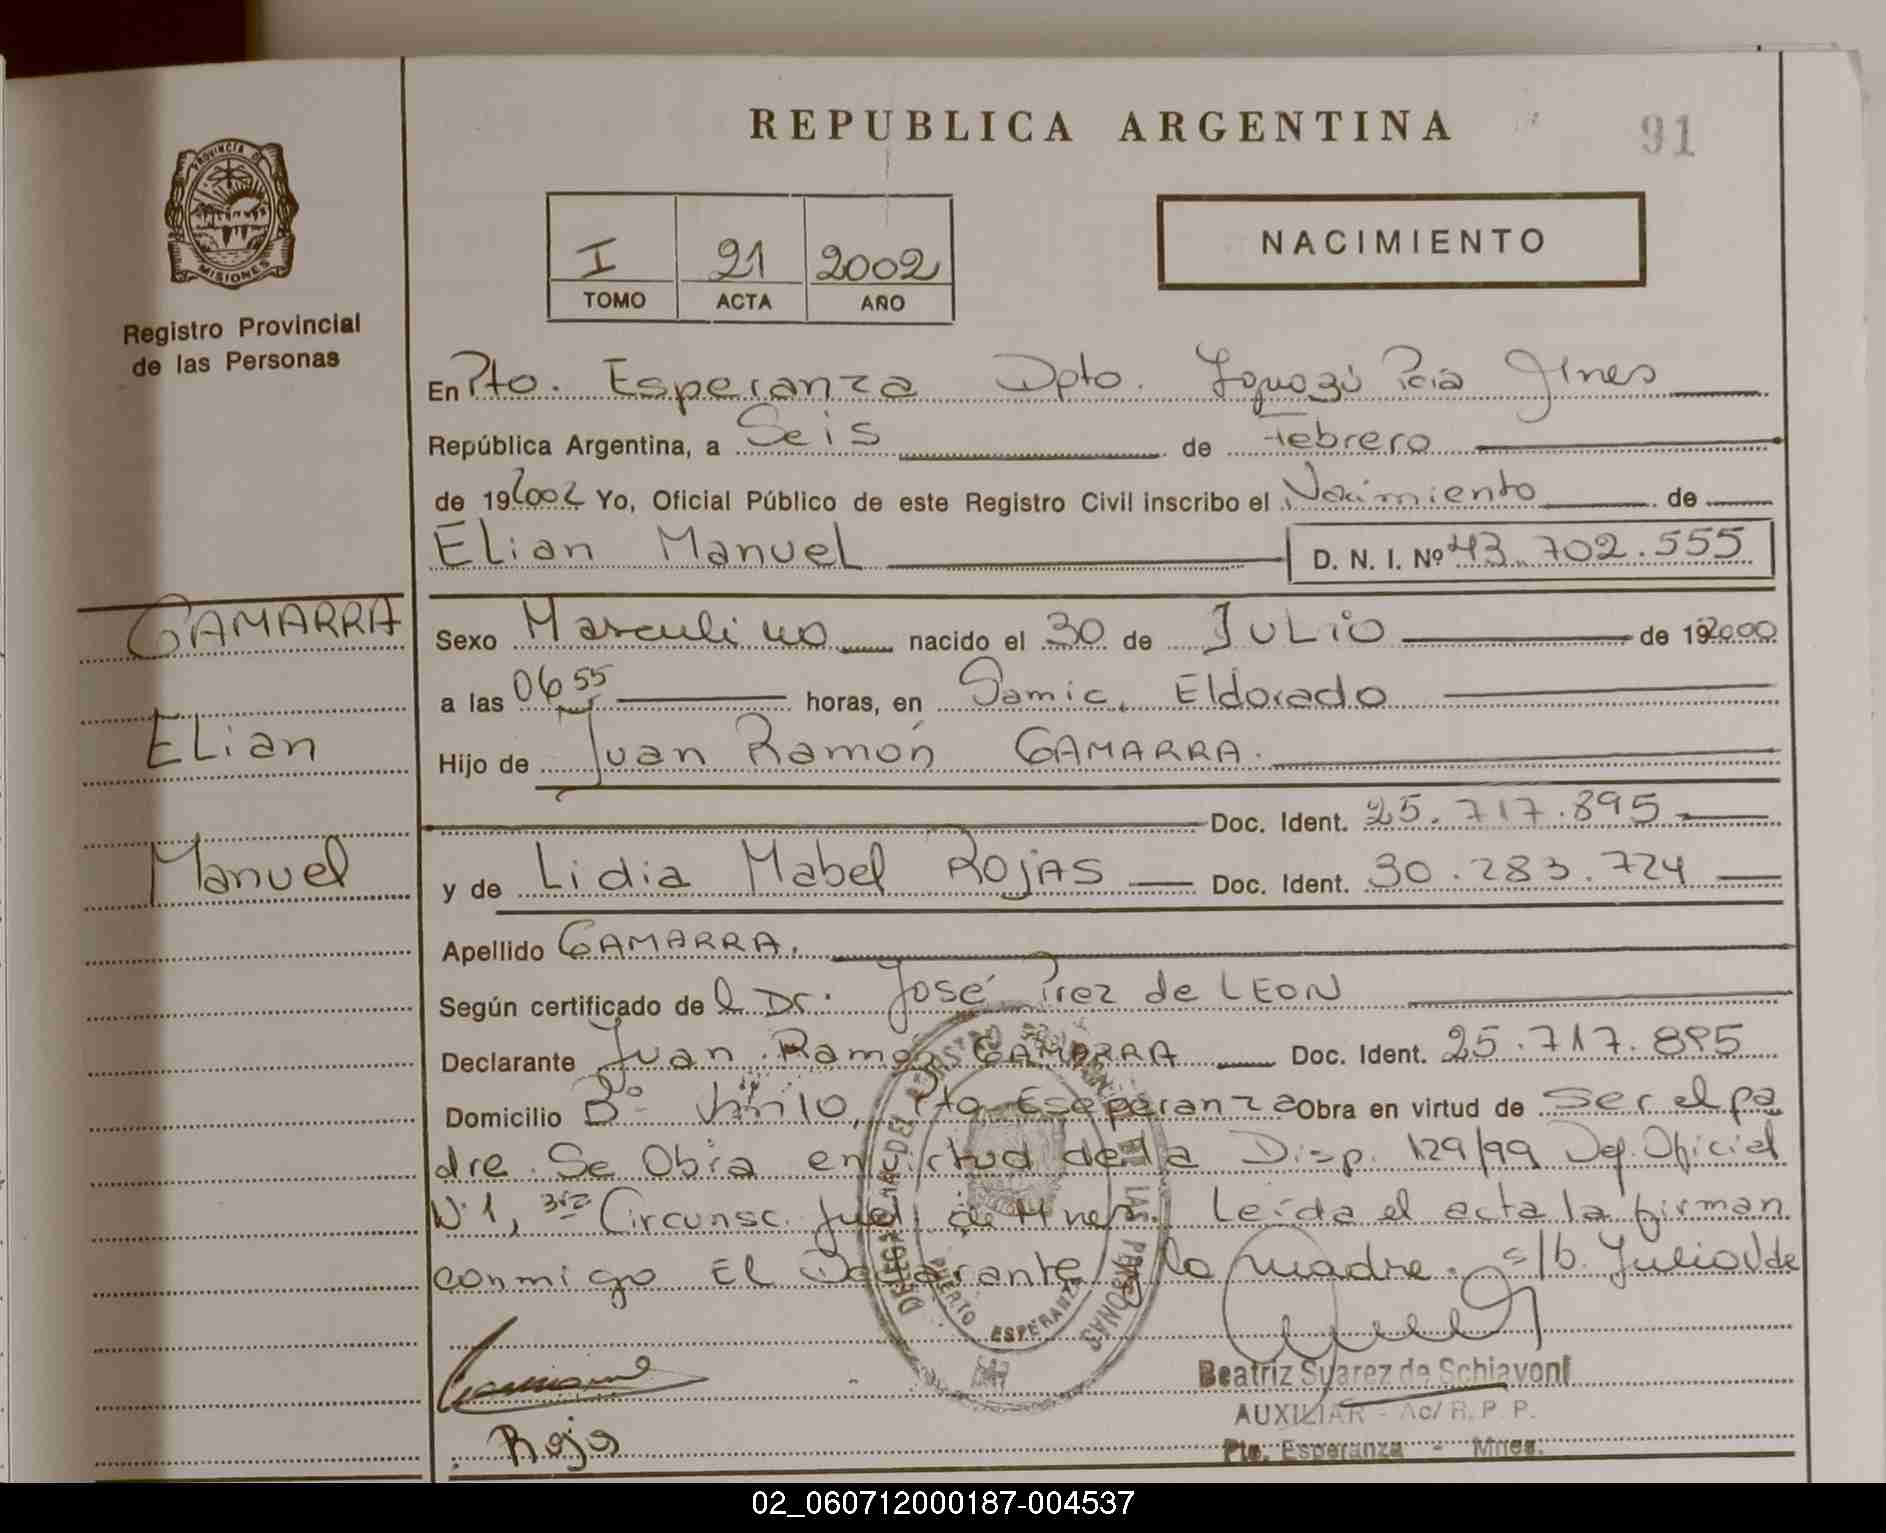 REPUBLICA ARGENTINA
91
PROVINCIA DE
MISIONES
Registro Provincial
de las Personas
I 21 2002
TOMO ACTA AÑO
NACIMIENTO
En Pto. Esperanza Dpto. Iguazú Pcia Mnes
República Argentina, a Seis de Febrero
de 19 2002 Yo, Oficial Público de este Registro Civil inscribo el Nacimiento de
Elian Manuel D. N. I. Nº 43.702.555
GAMARRA
Elian
Manuel
Sexo Masculino nacido el 30 de Julio de 19 2000
a las 06 55 horas, en Samic. Eldorado
Hijo de Juan Ramón GAMARRA.
Doc. Ident. 25.717.895
y de Lidia Mabel ROJAS Doc. Ident. 30.283.724
Apellido GAMARRA.
Según certificado de l Dr. José Prez de LEON
Declarante Juan Ramón GAMARRA Doc. Ident. 25.717.895
Domicilio Bº Pto Eseperanza Obra en virtud de Ser el pa
dre. Se Obra en virtud de la Disp. 129/99 Def. Oficial
Nº 1, 3ra Circunsc. Jud. de Mnes. Leída el acta la firman
conmigo El Declarante y la madre. Julio
PUERTO ESPERANZA
Beatriz Suarez de Schiavoni
AUXILIAR - Ac/ R. P. P.
Pto. Esperanza - Mnes.
Rojas
02_060712000187-004537